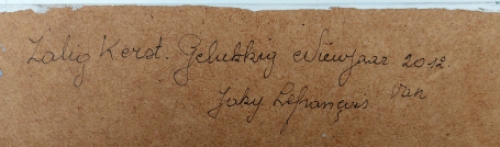 Zalig Kerst. Gelukkig Nieuwjaar 2012.
Jaky Lefrançois van